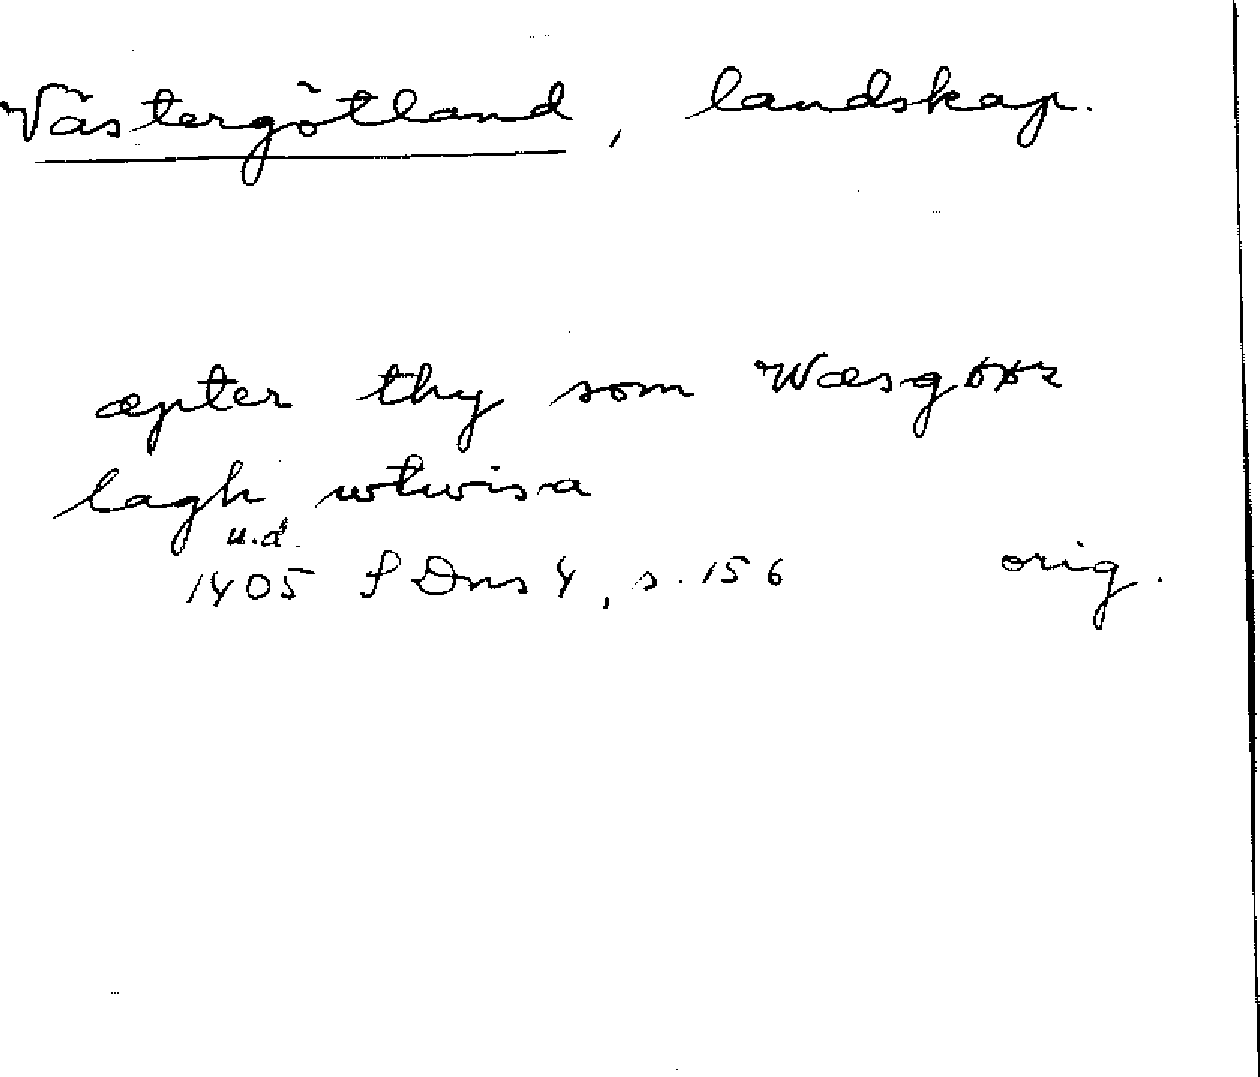 Västergötland, landskap.
æpter thy som Wæsgøtz
lagh wtwisa
u.d.
1405 f Dns 4, s. 156 orig.